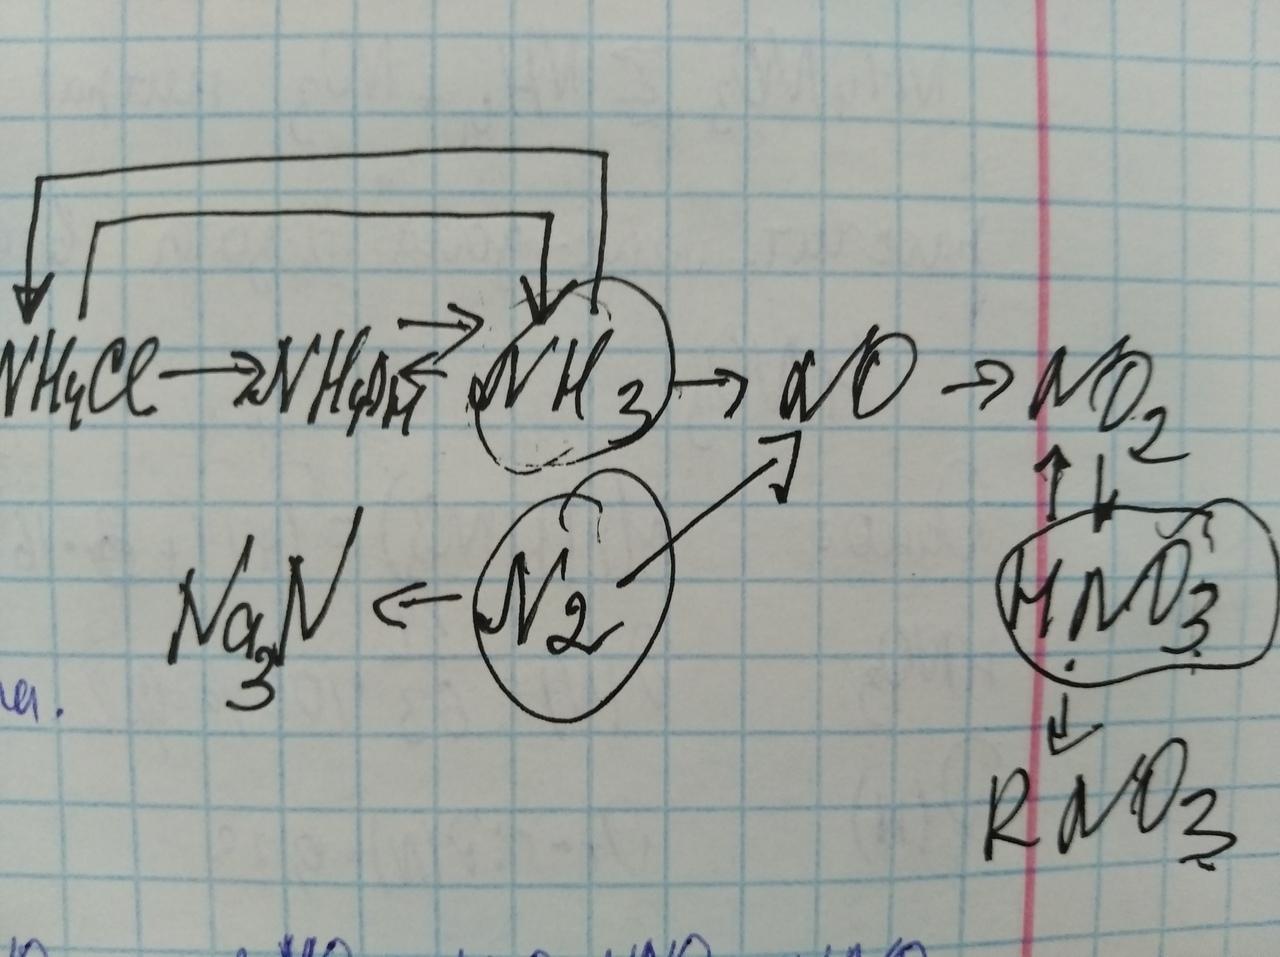 NH₄Cl → NH₄OH ⇄ NH₃ → NO → NO₂
Na₃N ← N₂
HNO₃
RNO₃